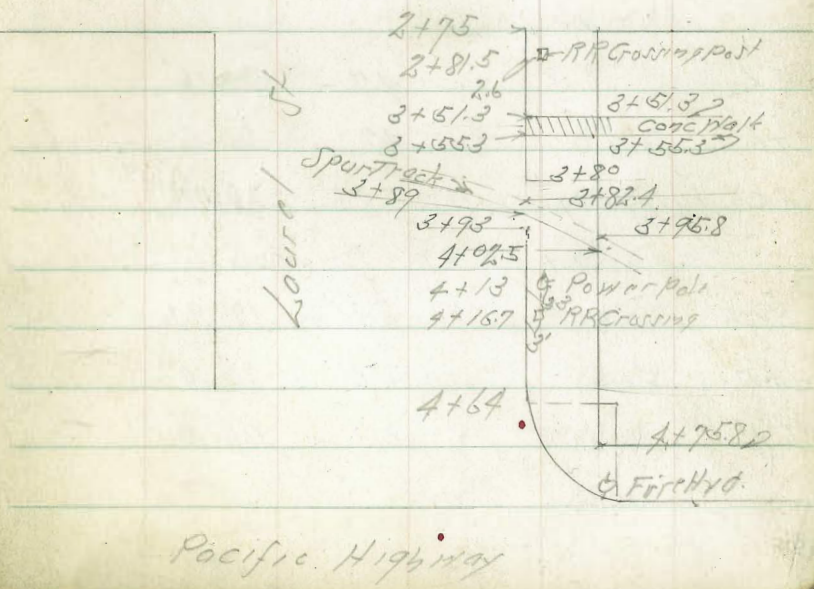 2+75
2+81.5 RR Crossing post
2.6
3+51.3 3+51.3
Conc Walk
3+553 3+55.3
Spur Track 3+80
3+89 3+82.4
3+93 3+95.8
4+02.5
4+13 Power Pole
3.3
4+16.7 5 RR Crossing
3'
4+64
4+75.8
Fire Hyd.
Laurel St.
Pacific Highway